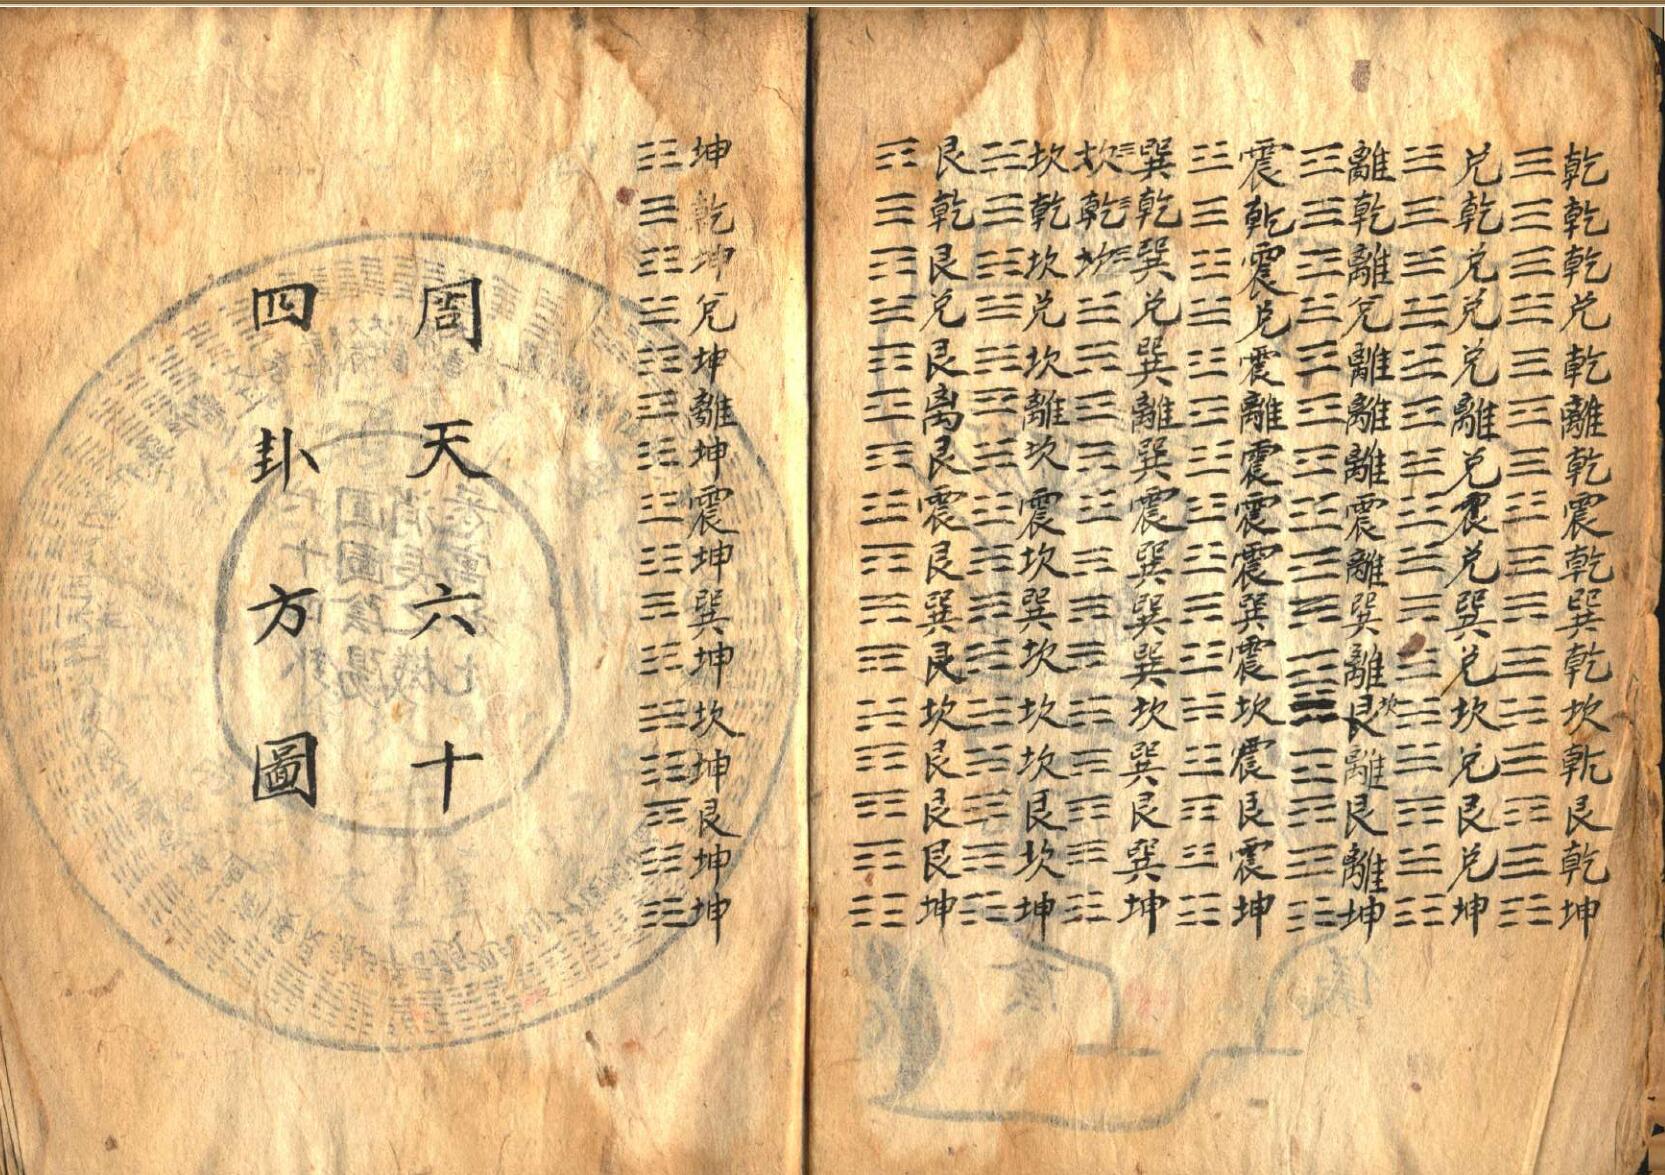 乾乾乾兌乾離乾震乾巽乾坎乾艮乾坤
兌乾兌兌兌離兌震兌巽兌坎兌艮兌坤
離乾離兌離離離震離巽離艮坎離艮離坤
震乾震兌震離震震震巽震坎震艮震坤
巽乾巽兌巽離巽震巽巽巽坎巽艮巽坤
坎乾坎
坎乾坎兌坎離坎震坎巽坎坎坎艮坎坤
艮乾艮兌艮离艮震艮巽艮坎艮艮艮坤
坤乾坤兌坤離坤震坤巽坤坎坤艮坤坤
周天六十
四卦方圖